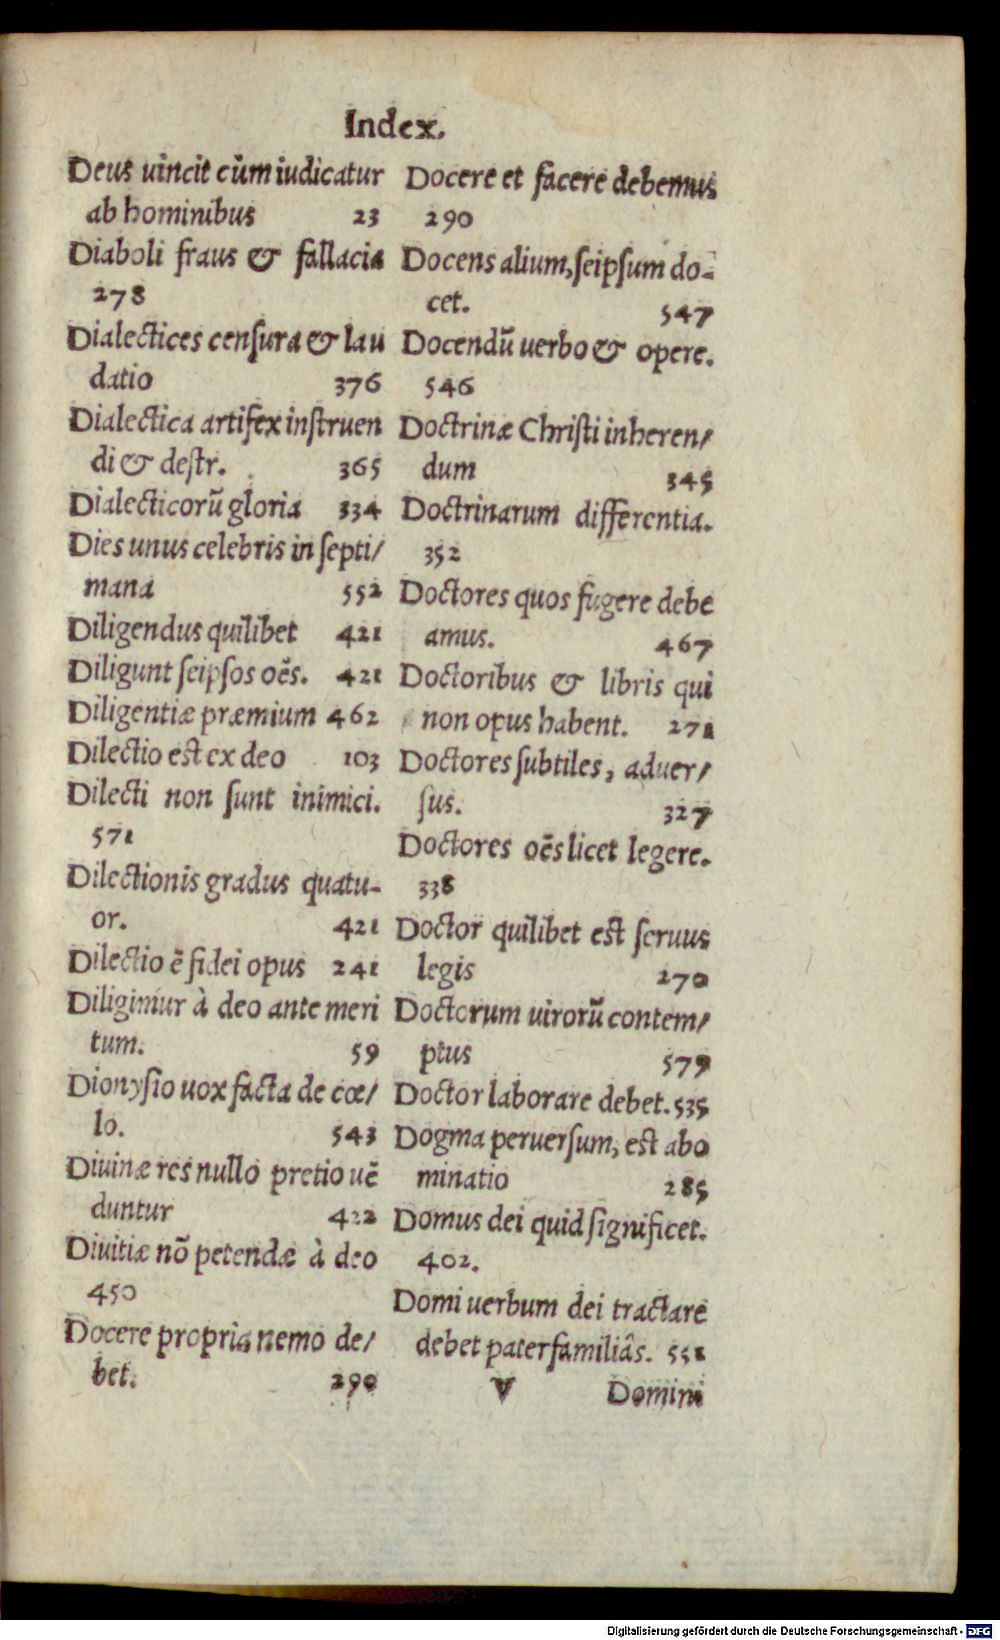 Index.
Deus uincit cùm iudicatur
ab hominibus 23
Diaboli fraus & fallacia
278
Dialectices censura & lau
datio 376
Dialectica artifex instruen
di & destr. 365
Dialecticorũ gloria 334
Dies unus celebris in septi/
mana 552
Diligendus quilibet 421
Diligunt seipsos oẽs. 421
Diligentiæ præmium 462
Dilectio est ex deo 103
Dilecti non sunt inimici.
571
Dilectionis gradus quatu-
or. 421
Dilectio ẽ fidei opus 241
Diligimur à deo ante meri
tum. 59
Dionysio uox facta de cœ/
lo. 543
Diuinæ res nullo pretio uẽ
duntur 422
Diuitiæ nõ petendæ à deo
450
Docere propria nemo de/
bet. 290
Docere et facere debemus
290
Docens alium, seipsum do-
cet. 547
Docendũ uerbo & opere.
546
Doctrinæ Christi inheren/
dum 345
Doctrinarum differentia.
352
Doctores quos fugere debe
amus. 467
Doctoribus & libris qui
non opus habent. 271
Doctores subtiles, aduer/
sus. 327
Doctores oẽs licet legere.
338
Doctor quilibet est seruus
legis 270
Doctorum uirorũ contem/
ptus 579
Doctor laborare debet. 535
Dogma peruersum, est abo
minatio 285
Domus dei quid significet.
402.
Domi uerbum dei tractare
debet paterfamiliâs. 551
V Domini
Digitalisierung gefördert durch die Deutsche Forschungsgemeinschaft - DFG